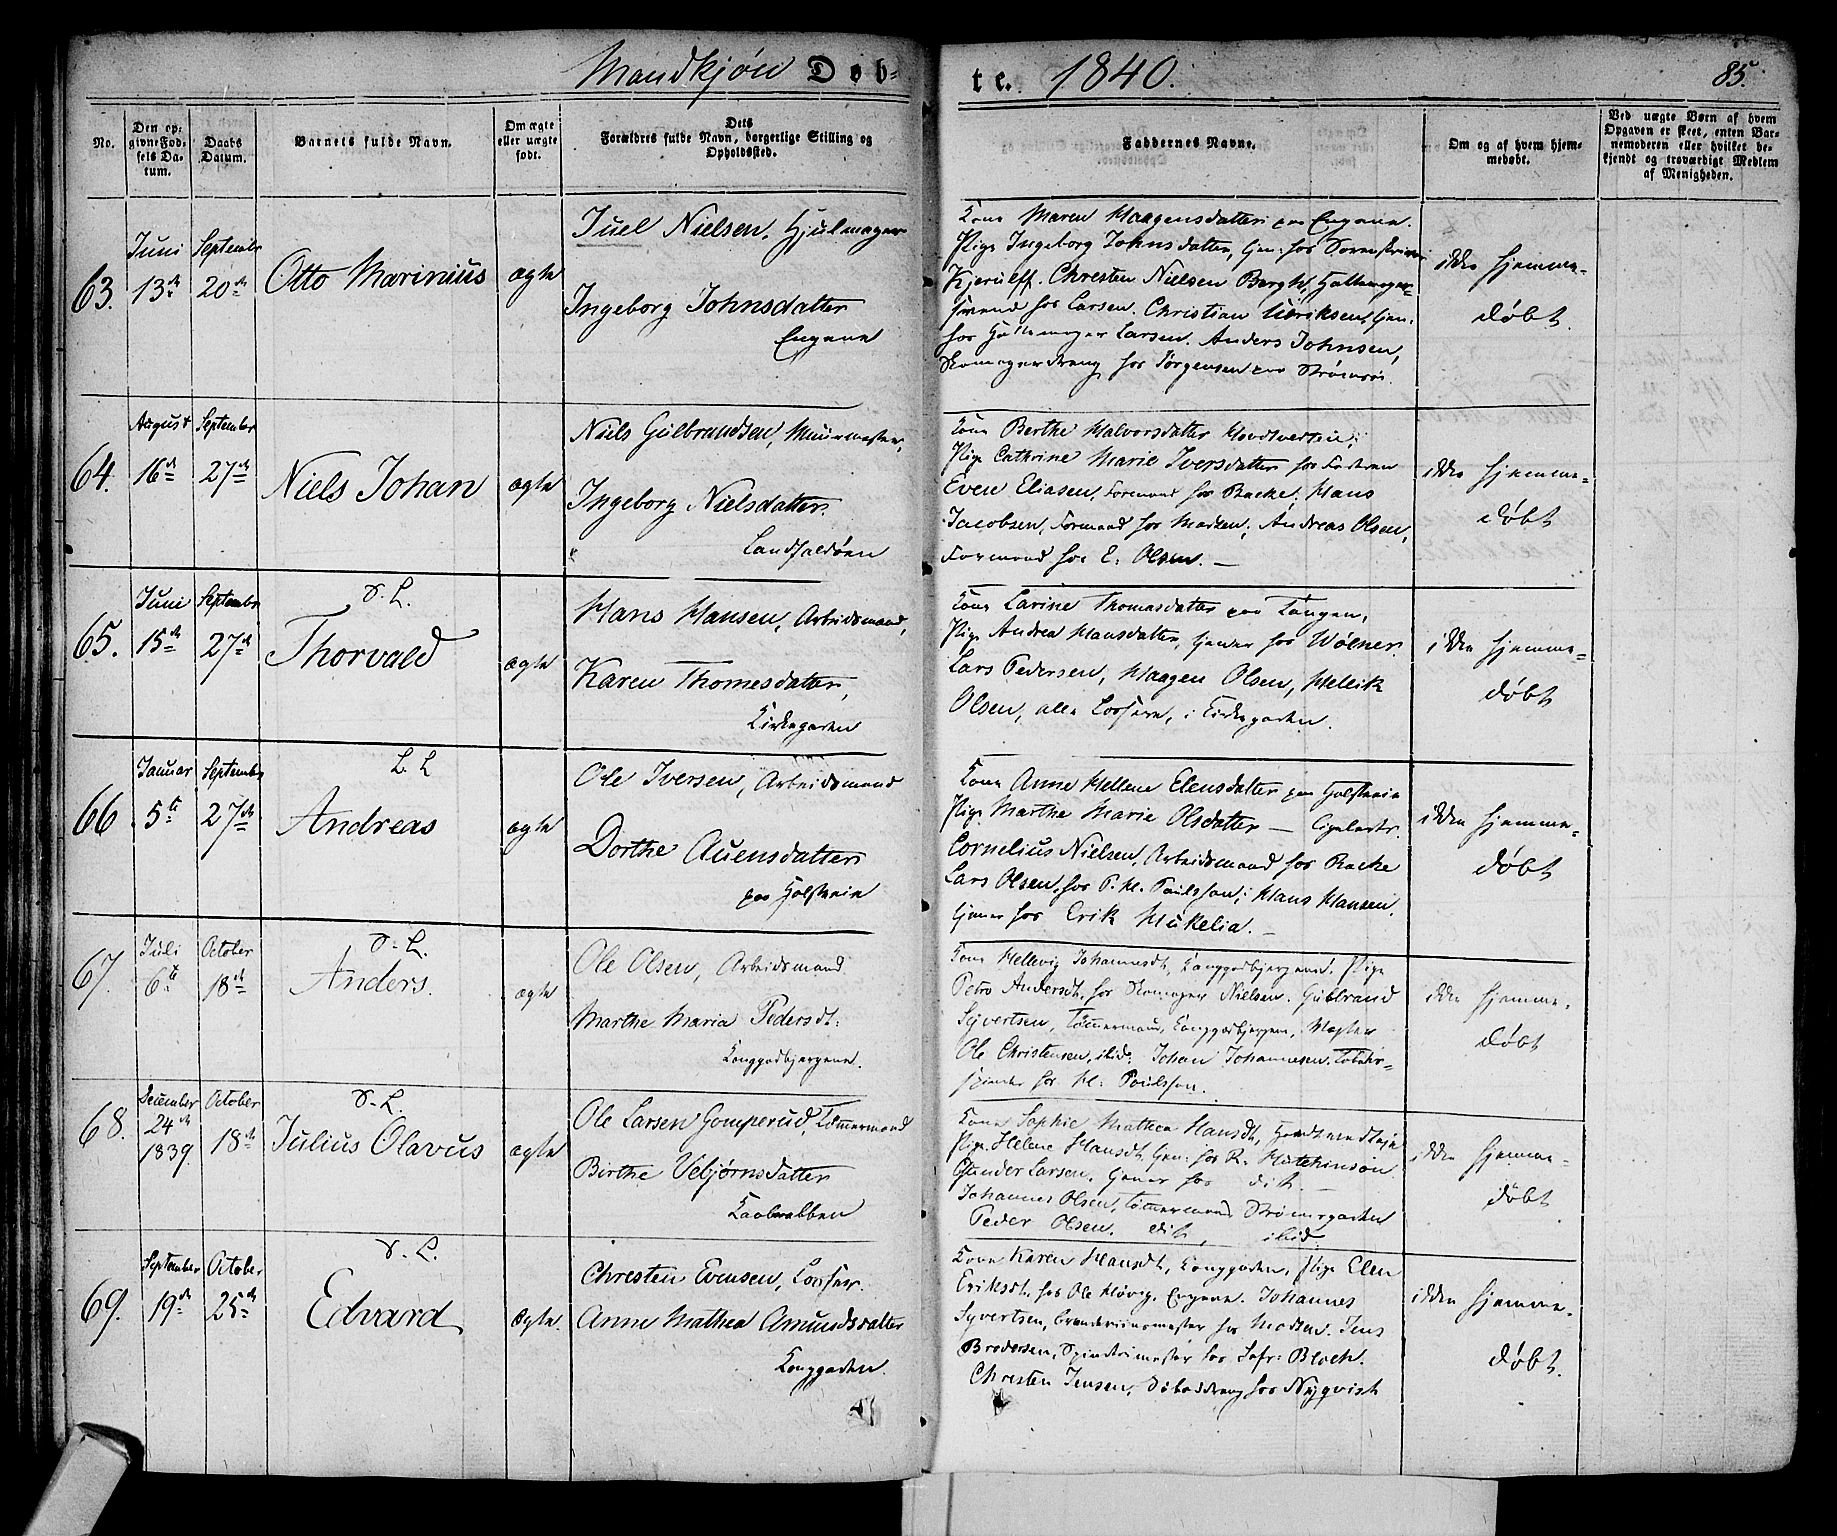 Mandkjøn Døb-
te. 1840.
85.
No.
Den op-
givne Fød-
sels Da-
tum.
Daabs
Datum.
Barnets fulde Navn.
Om ægte
eller uægte
født.
Dets
Forældres fulde Navn, borgerlige Stilling og
Opholdssted.
Faddernes Navne.
Om og af hvem hjem-
medøbt.
Ved uægte Børn af hvem
Opgaven er skeet, enten Bar-
nemoderen eller hvilket be-
kjendt og troværdigt Medlem
af Menigheden.
63.
Juni
13de
Septembr
20de
Otto Marinius
ægte
Juel Nielsen, Hjulmager
Ingeborg Johnsdatter
Engene
Kone Maren Haagensdatter paa Engene.
Pige Ingeborg Johnsdatter, tjen: hos Sorenskriver
Kjerulff. Chresten Nielsen Bergh,
Svend hos Larsen. Christian Eriksen, tjen:
hos Larsen. Anders Johnsen,
Skomagerdreng hos Jørgensen paa Strømsøe.
ikke hjemme-
døbt.
64.
August
16de
September
27de
Niels Johan
ægte
Niels Gulbrandsen, Muurmester,
Ingeborg Nielsdatter
Landfaldøen
Kone Berthe Halvorsdatter
Pige Cathrine Marie Iversdatter hos
Even Eliasen, Formand hos Backe. Hans
Jacobsen, Formand hos Madsen, Andreas Olsen,
Formand hos E. Olsen. —
ikke hjemme-
døbt
65.
Juni
15de
Septembr
27de
V. L.
Thorvald
ægte
Hans Hansen, Arbeidsmand,
Karen Thomesdatter,
Kirkegaden
Kone Larine Thomasdatter paa Tangen,
Pige Andrea Hansdatter, tjener hos Wølner
Lars Pedersen, Haagen Olsen, Mellik
Olsen, alle Losfarer, i Kirkegaden.
ikke hjemme-
døbt
66.
Januar
5te
September
27de
L. L
Andreas
ægte
Ole Iversen, Arbeidsmand
Dorthe Auensdatter
paa Holstein
Kone Anne Hellene Elensdatter paa Holstein
Pige Marthe Marie Olsdatter —
Cornelius Nielsen, Arbeidsmand hos Backe
Lars Olsen, hos P. H. Poulsson; Hans Hansen,
tjener hos Erik Mukelia. —
ikke hjemme-
døbt
67.
Juli
6te
October
18de
V. L.
Anders.
ægte
Ole Olsen, Arbeidsmand
Marthe Maria Pedersdt:
Tanggadbjergene.
Kone Hellevig Johannesdt, Pige
Petro Andersdt. hos Skomager Nielsen. Gulbrand
Syvertsen, Tømmermand,
Ole Christensen, ibid: Johan Johannesen.
hos H: Poulsson.
ikke hjemme-
døbt
68.
December
24de
1839.
October
18de
V. L.
Julius Olavus
ægte
Ole Larsen Gomperud, Tømmermand
Birthe Vebjørnsdatter
Kone Sophie Mathea Hansdt,
Pige Helene Hansdt, tjen: hos R. Hutchinson
Gunder Larsen, tjener hos dit. —
Johannes Olsen, Tømmermand Strømsgaden
Peder Olsen. dit, ibid:
ikke hjemme-
døbt
69.
September
19de
October
25de
V. L.
Edvard
Ægte.
Chresten Evensen, Losfar.
Anne Mathea Amundsdatter
Tanggaden.
Kone Karen Hansdt, Tanggaden, Pige Elen
Eriksdt. hos Ole Høvig, Engene. Johannes
Syvertsen, hos Madsen. Jens
Brodersen, hos Bloch.
Chresten Jensen, hos Nyqvist
ikke hjemme-
døbt.